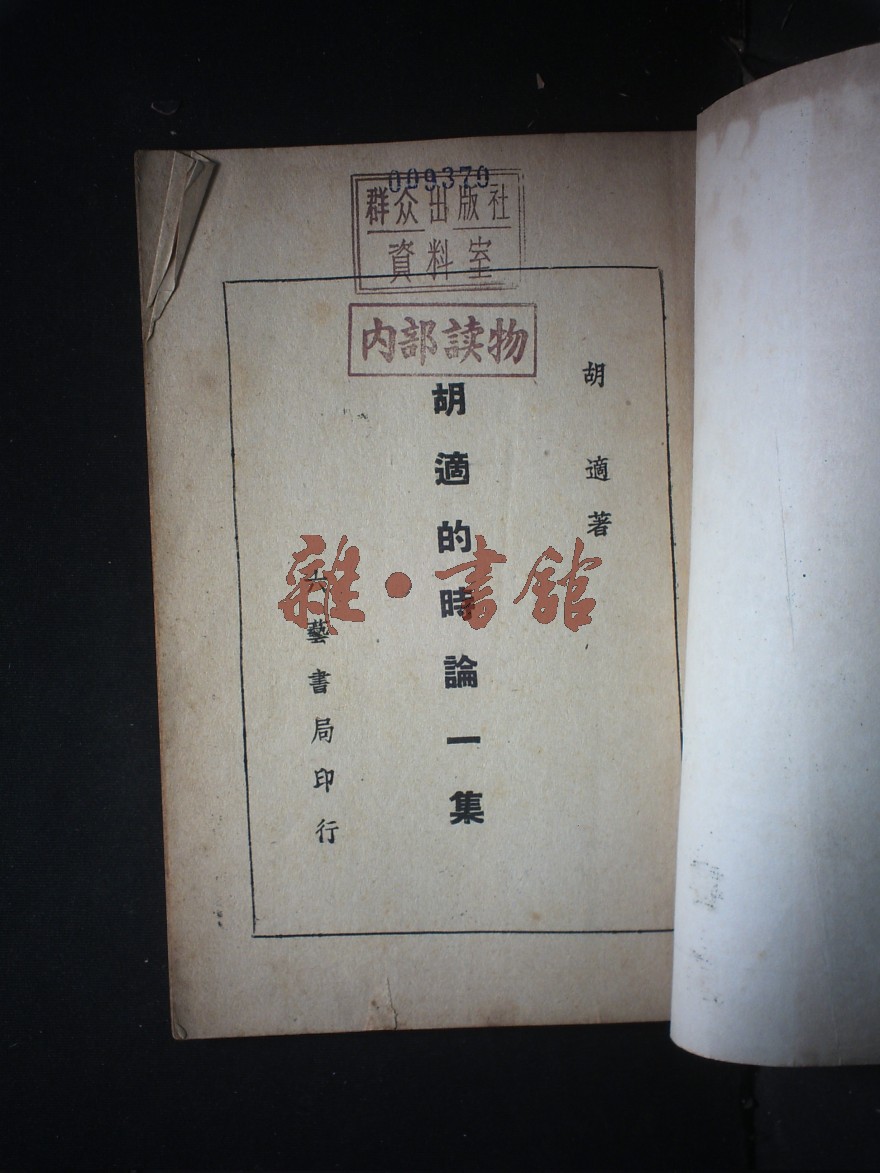 009370
群众出版社
資料室
内部读物
胡適著
胡適的時論一集
六藝書局印行
雜·書館